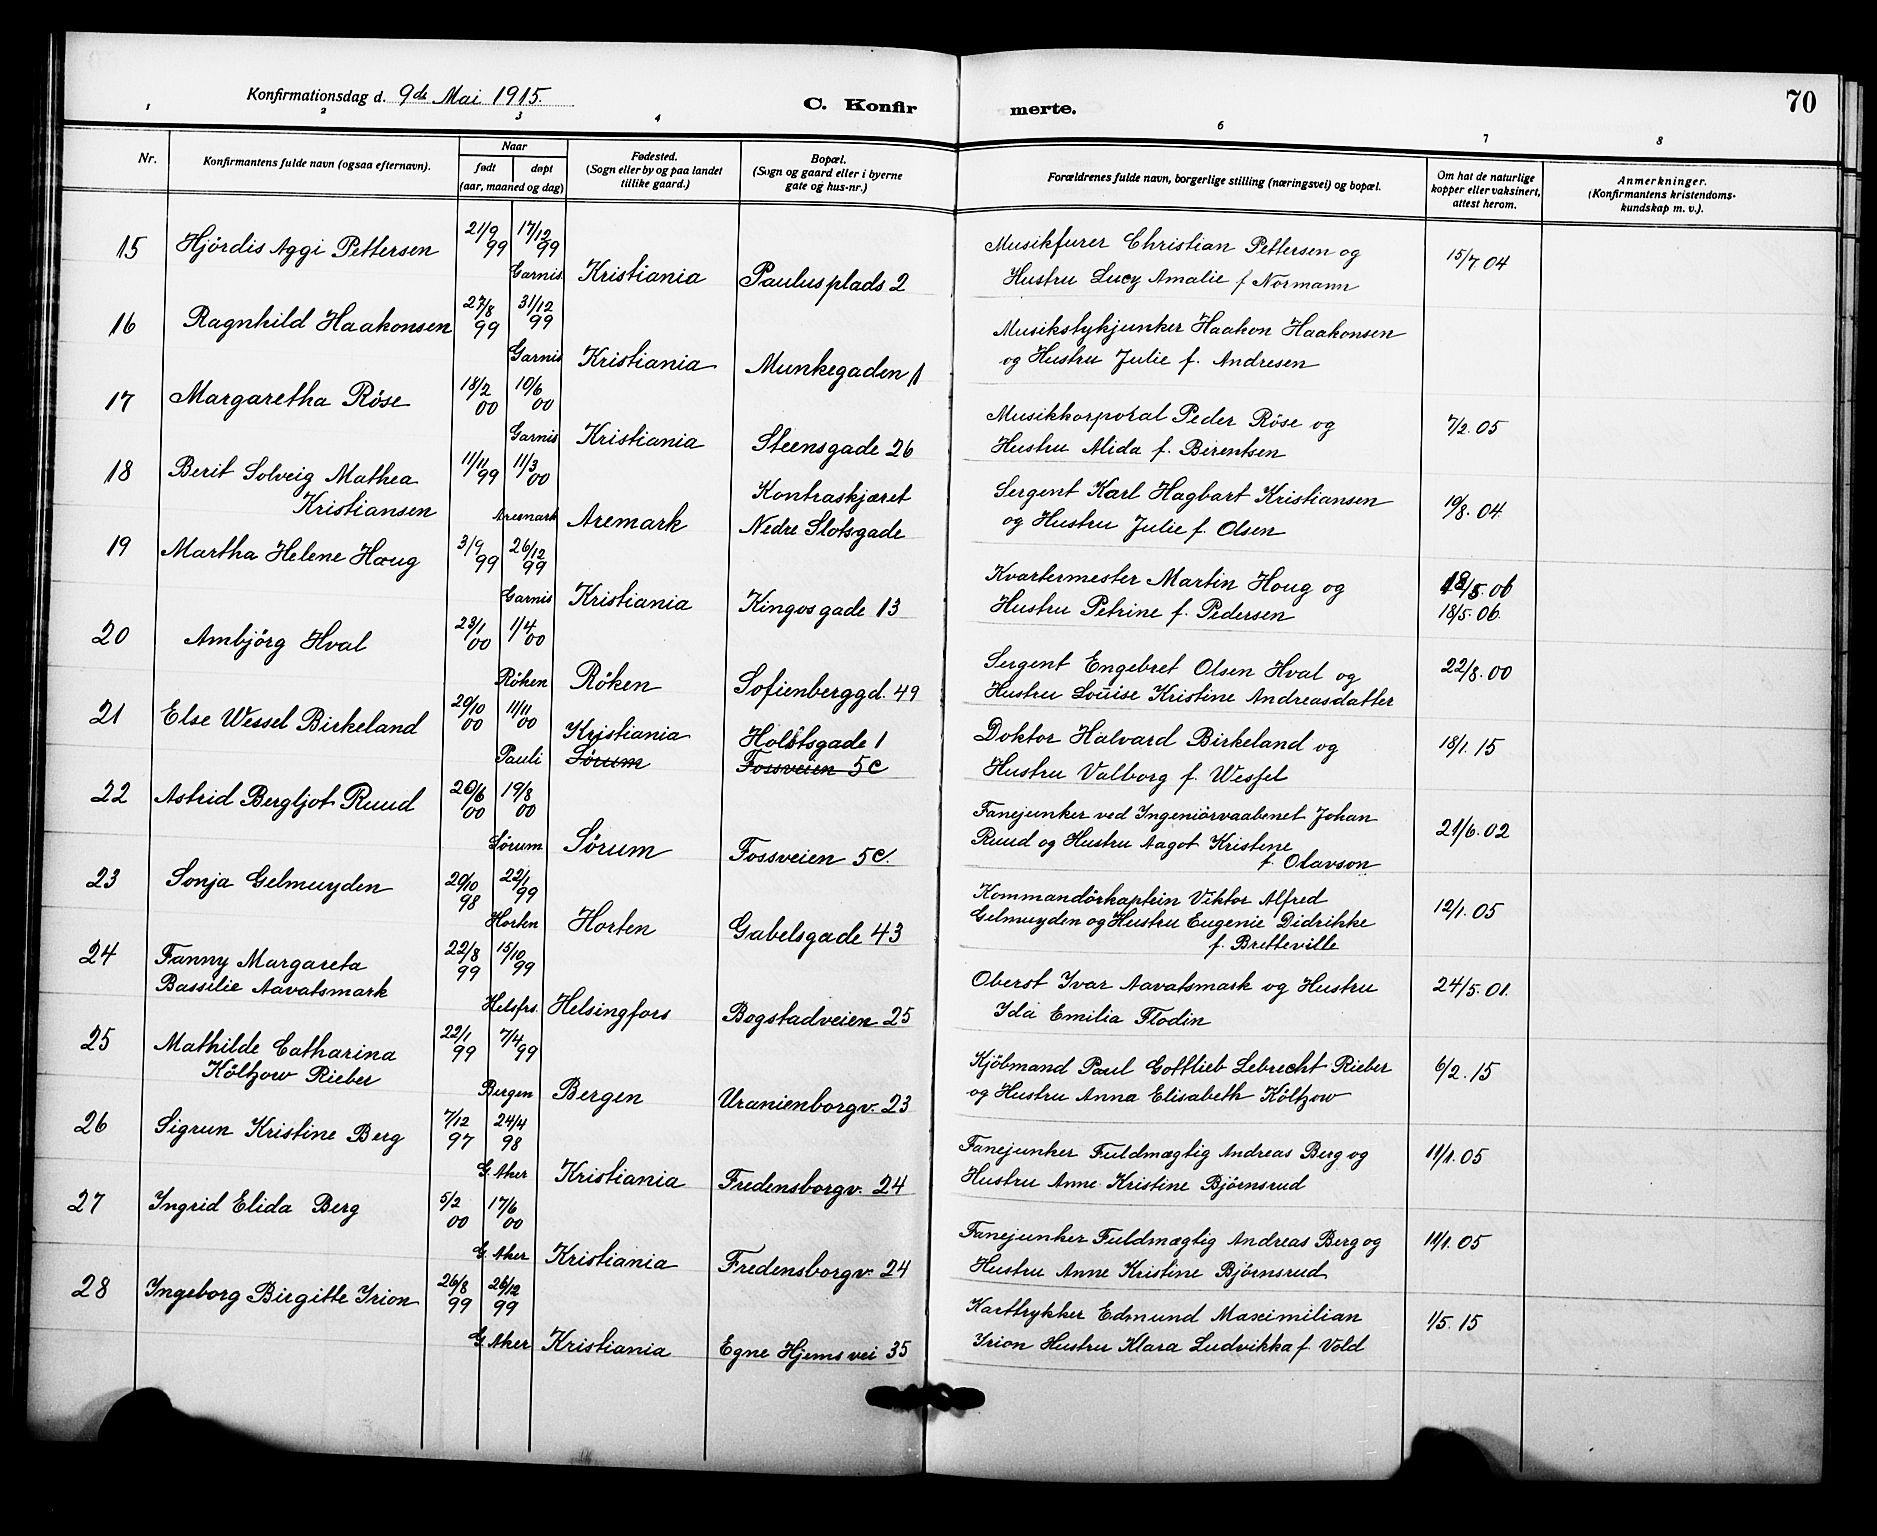 Konfirmationsdag d. 9de Mai 1915.
C. Konfir merte.
70
1 2 3 4 6 7 8
Nr.
Konfirmantens fulde navn (ogsaa efternavn).
Naar
født døpt
(aar, maaned og dag)
Fødested.
(Sogn eller by og paa landet
tillike gaard.)
Bopæl.
(Sogn og gaard eller i byerne
gate og hus-nr.)
Forældrenes fulde navn, borgerlige stilling (næringsvei) og bopæl.
Om hat de naturlige
kopper eller vaksinert,
attest herom.
Anmerkninger.
(Konfirmantens kristendoms-
kundskap m. v.).
15 Hjördis Aggi Pettersen 21/9 99 17/12 99
Garnis. Kristiania Paulusplads 2
Musikfurer Christian Pettersen og
Hustru Lucy Amalie f Normann
15/7 04
16 Ragnhild Haakonsen 27/8 99 31/12 99
Garnis Kristiania Munkegaden 1
Musikstykjunker Haakon Haakonsen
og Hustru Julie f. Andresen
17 Margaretha Röse 18/2 00 10/6 00
Garnis Kristiania Steensgade 26
Musikkorporal Peder Röse og
Hustru Alida f. Berentsen
7/2. 05
18 Berit Solveig Mathea 11/11 99 11/3 00
Kristiansen
Aremark Aremark
Kontraskjæret
Nedre Slotsgade
Sergent Karl Hagbart Kristiansen
og Hustru Julie f. Olsen
19/8. 04.
19 Martha Helene Houg 3/9 99 26/12 99
Garnis Kristiania Kingosgade 13
Kvartermester Martin Houg og
Hustru Petrine f. Pedersen
18/5. 06
18/5. 06.
20 Ambjörg Hval 23/1 00 1/4 00
Röken Röken Sofienberggd. 49
Sergent Engebret Olsen Hval og
Hustru Louise Kristine Andreasdatter
22/8. 00
21 Else Wessel Birkeland 20/10 00 11/11 00
Kristiania Holstsgade 1
Pauli Sørum Fossveien 5c
Doktor Halvard Birkeland og
Hustru Valborg f. Wessel
18/1. 15
22 Astrid Bergljot Ruud 20/6 00 19/8 00
Sørum Sørum Fossveien 5c.
Fanejunker ved Ingeniörvaabenet Johan
Ruud og Hustru Aagot Kristine
f. Olavson
21/6. 02
23 Sonja Gelmuyden 20/10 98 22/1 99
Horten Horten Gabelsgade 43
Kommandörkaptein Viktor Alfred
Gelmuyden og Hustru Eugenie Didrikke
f. Bretteville
12/1. 05
24 Fanny Margareta 22/8 99 15/10 99
Bassilie Aavatsmark
Helsfrs. Helsingfors Bogstadveien 25
Oberst Ivar Aavatsmark og Hustru
Ida Emilia Flodin
24/5. 01.
25 Mathilde Catharina 22/1 99 7/4 99
Költzow Rieber
Bergen Bergen Uranienborgv. 23
Kjöbmand Paul Gottlieb Lebrecht Rieber
og Hustru Anna Elisabeth Költzow
6/2. 15
26 Sigrun Kristine Berg 7/12 97 24/4 98
G. Aker Kristiania Fredensborgv. 24
Fanejunker Fuldmægtig Andreas Berg og
Hustru Anne Kristine Bjørnsrud
11/1. 05
27 Ingrid Elida Berg 5/2 00 17/6 00
G. Aker Kristiania Fredensborgv. 24
Fanejunker Fuldmægtig Andreas Berg og
Hustru Anne Kristine Bjørnsrud
11/1. 05
28 Ingeborg Birgitte Irion 26/8 99 26/12 99
G. Aker Kristiania Egne Hjems vei 35
Karttrykker Edmund Maximilian
Irion Hustru Klara Ludvikka f. Vold
1/5. 15